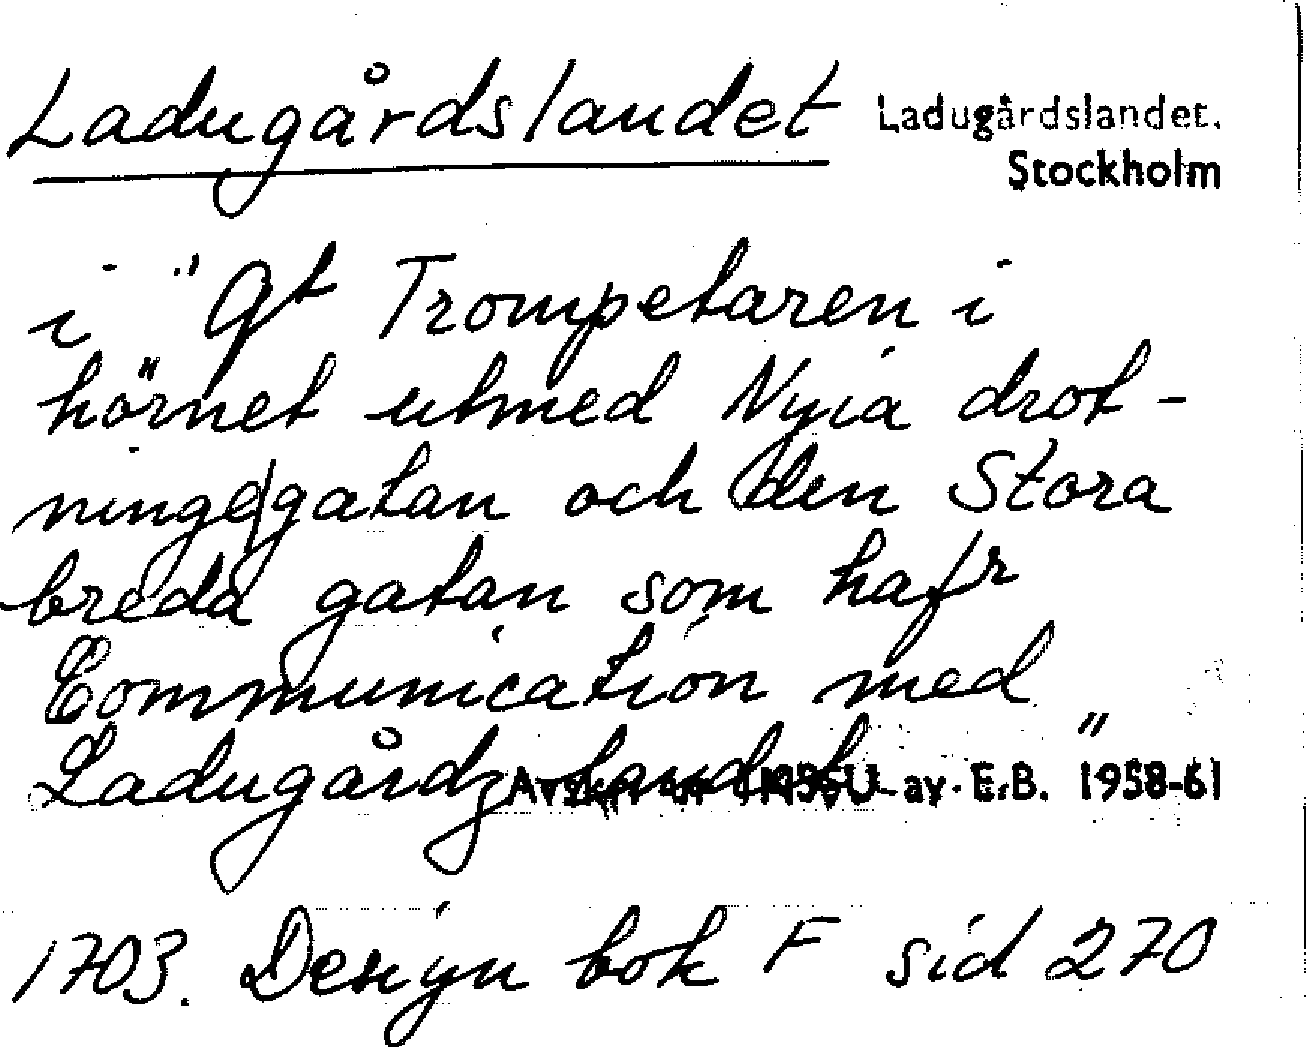 Ladugårdslandet
Ladugårdslandet.
Stockholm
i "Qt Trompetaren i
hörnet utmed Nyia drot-
ningegatan och den Stora
breda gatan som hafr
Communication med
Ladugårdzlandet"
av E.B. 1958-61
1703. Design bok F sid 270